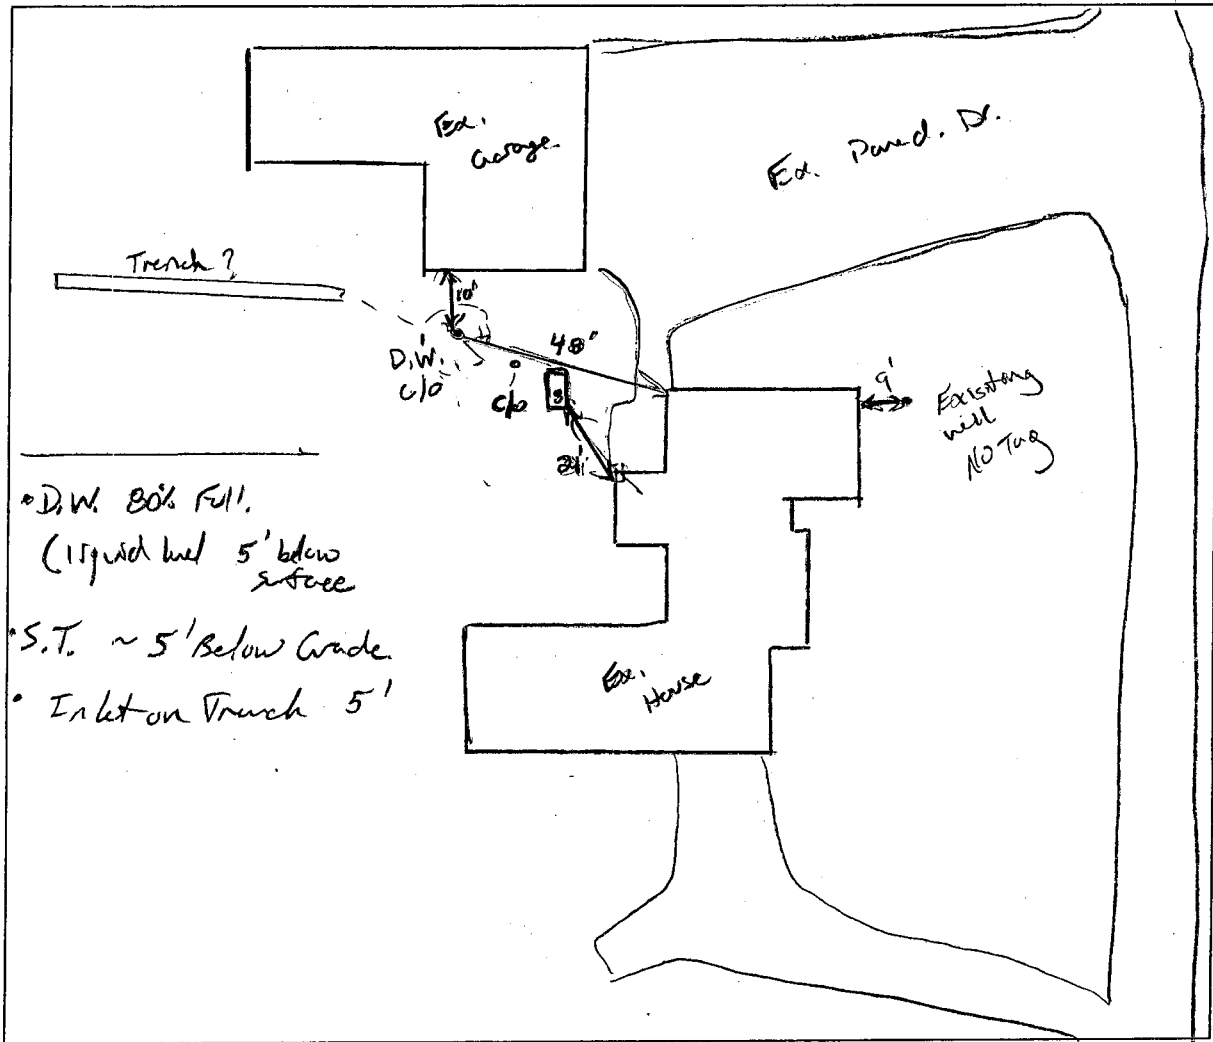 Ex.
Garage
Ex. Paved. Dr.
Trench ?
10'
48"
D.W.
c/o
c/o
9'
Existing
well
NO Tag
• D.W. 80% Full.
(liquid level 5' below
surface
• S.T. ~ 5' Below Grade.
• Inlet on Trench 5'
Ex.
House